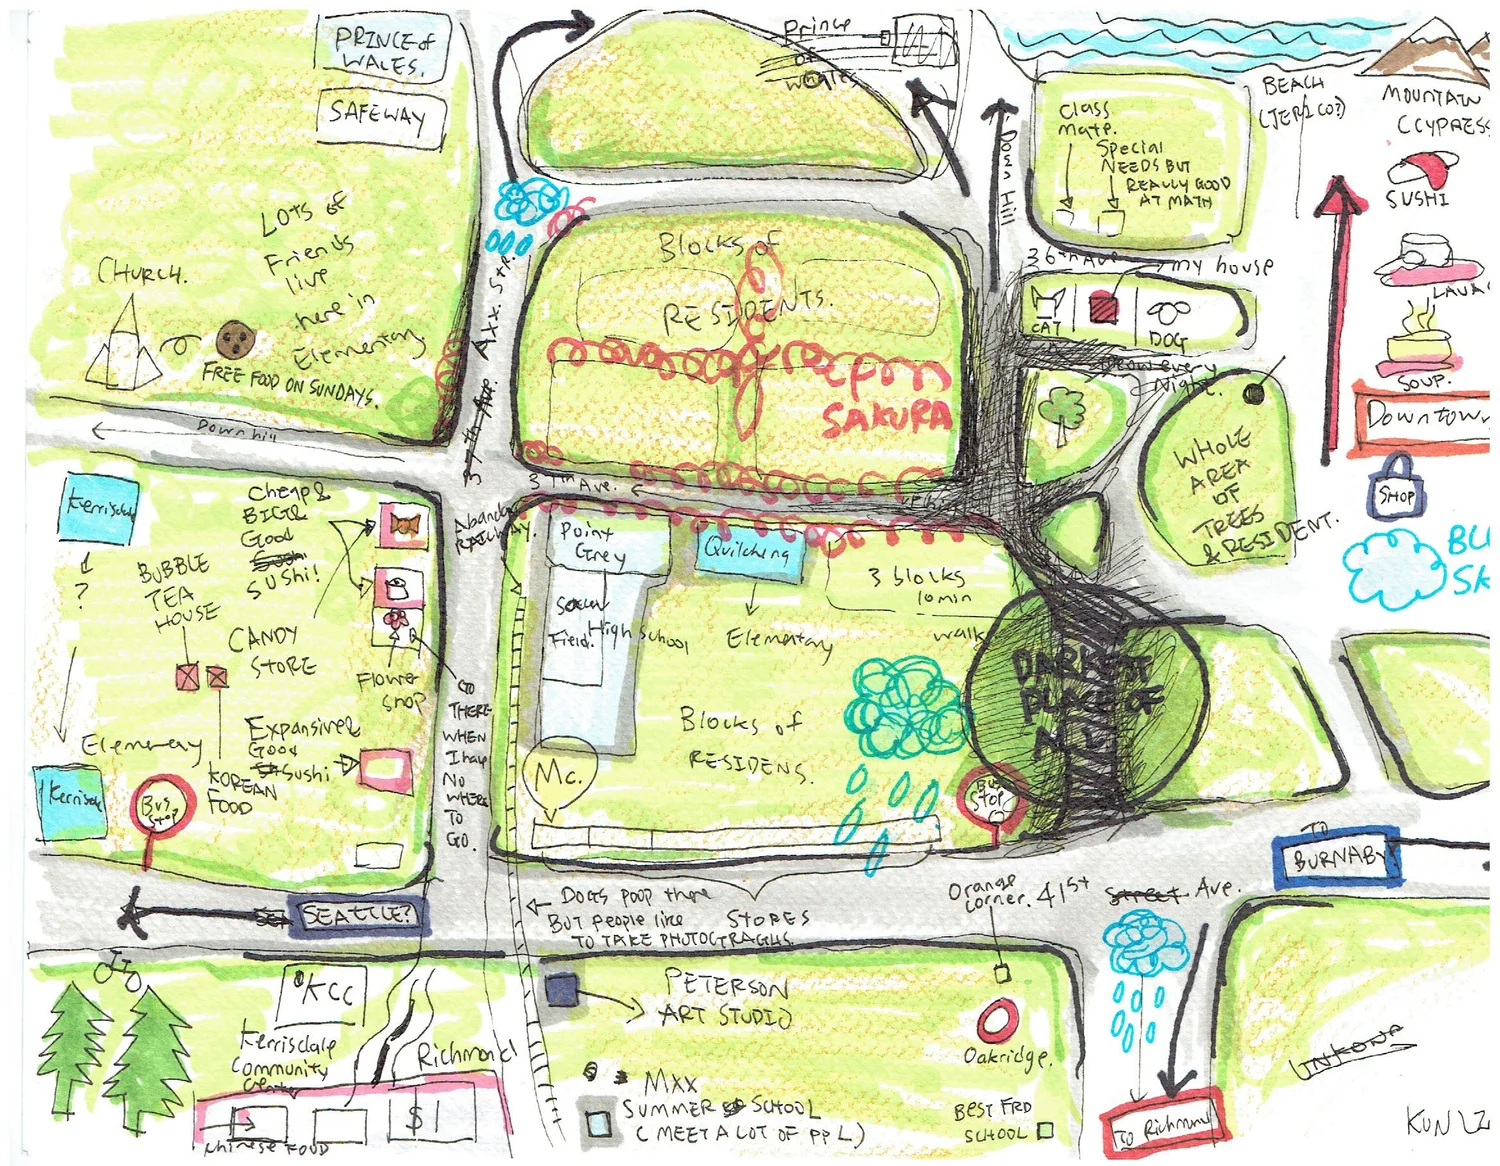 PRINCE OF
WALES.
SAFEWAY
LOTS OF
Friends
live
here in
Elementary
CHURCH.
FREE FOOD ON SUNDAYS.
Down hill
Prince
of
whales
Down Hill
Class
Mate.
Special
NEEDS BUT
REALLY GOOD
AT MATH
BEACH
(JERICO?)
MOUNTAIN
CCYPRESS
SUSHI
SOUP.
Downtown
SHOP
36th Ave
my house
CAT
DOG
Night.
WHOLE
AREA
OF
TREES
& RESIDENT.
Blocks of
RESIDENTS.
SAKURA
37th Ave.
37th Ave.
Kerrisdale
?
Cheap &
BIG &
Good
Sushi
SUSHI!
BUBBLE
TEA
HOUSE
CANDY
STORE
Flower
Shop
Expansive &
Good
Sushi
KOREAN
FOOD
Elementary
Kerrisdale
BUS
STOP
GO
THERE
WHEN
I have
NO
WHERE
TO
GO.
RAILWAY.
Point
Grey
Soccer
Field.
High School
Quilchena
Elementary
3 blocks
10min
walk
Blocks of
RESIDENS.
Mc.
DARKEST
PLACE OF
BUS
STOP
SEATTLE?
DOGS POOP there
BUT PEOPLE like
TO TAKE PHOTOGTRAGHS.
STORES
Orange
Corner.
41st Street Ave.
TO
BURNABY
KCC
Kerrisdale
Community
Center
Richmond
$1
Chinese FOOD
PETERSON
ART STUDIO
MXX
SUMMER SCHOOL
( MEET A LOT OF PPL)
Oakridge.
BEST FRD
SCHOOL
To Richmond
UNKONW